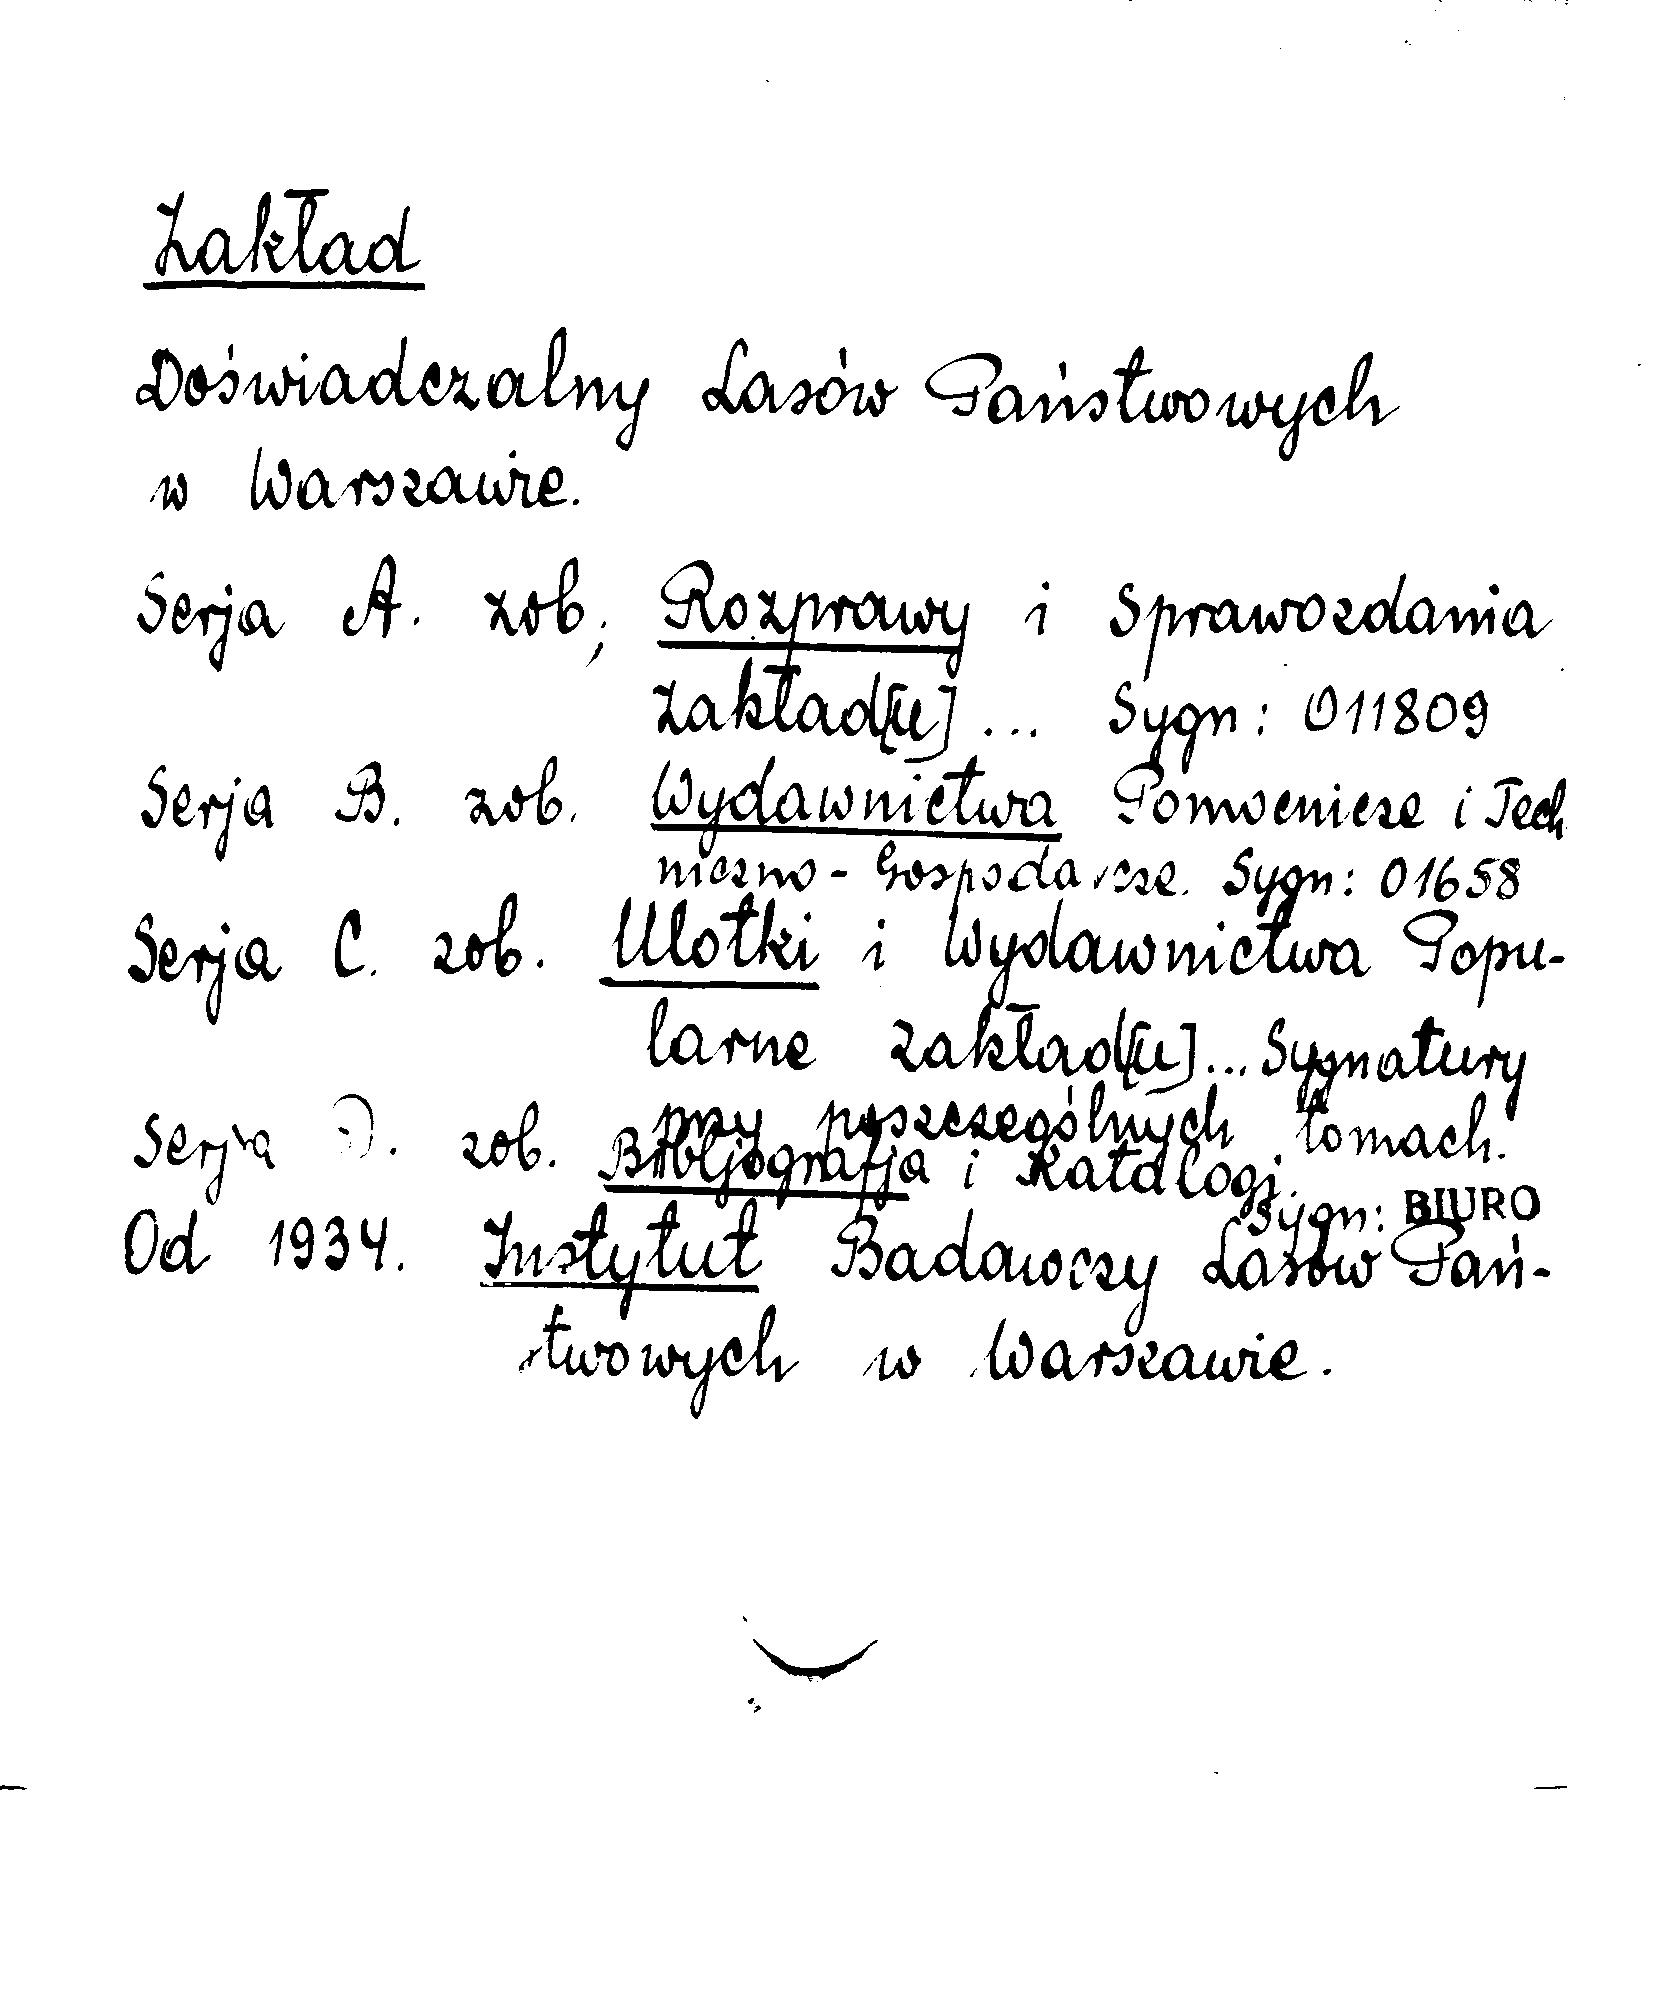 Zakład
Doświadczalny Lasów Państwowych
w Warszawie.
Serja A. zob; Rozprawy i Sprawozdania
Zakład[u] ... Sygn: 011809
Serja B. zob. Wydawnictwa Pomocnicze i Tech
niczno - Gospodarcze. Sygn: 01658
Serja C. zob. Ulotki i Wydawnictwa Popu-
larne Zakład[u]... Sygnatury
przy poszczególnych tomach.
Serja D. zob. Bibljografja i Katalogi.
Sygn: BIURO
Od 1934. Instytut Badawczy Lasów Pań-
stwowych w Warszawie.